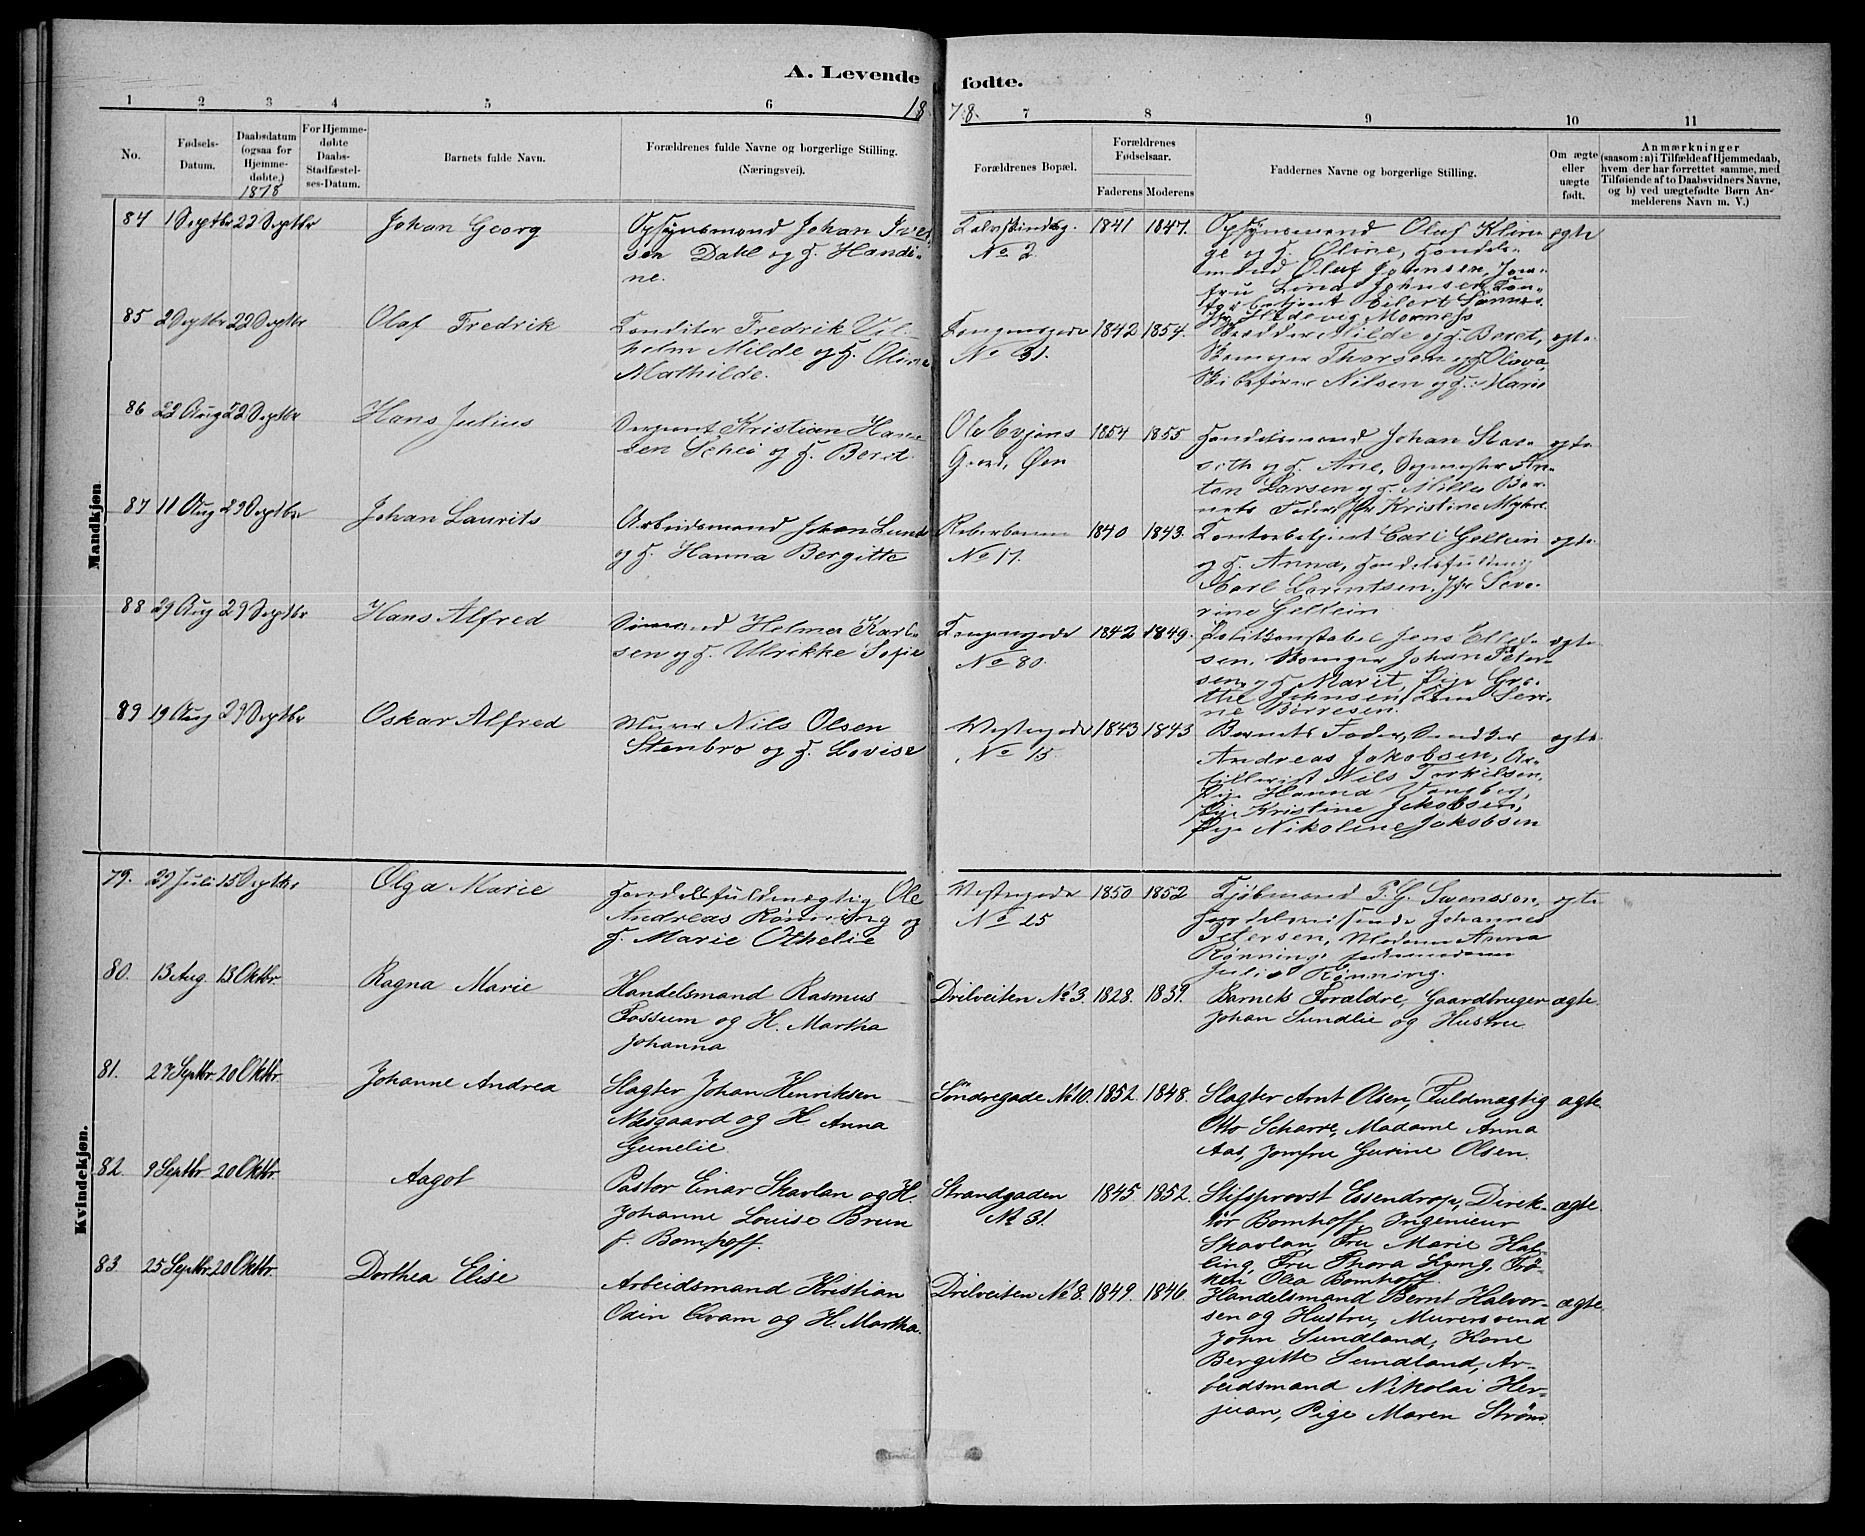 A. Levende fødte.
1878.
1 2 3 4 5 6 7 8 9 10 11
No.
Fødsels-Datum.
Daabsdatum (ogsaa for Hjemmedøbte.)
1878
For Hjemmedøbte Daabs-Stadfæstelses-Datum.
Barnets fulde Navn.
Forældrenes fulde Navne og borgerlige Stilling.
(Næringsvei).
Forældrenes Bopæl.
Forældrenes Fødselsaar.
Faderens Moderens
Faddernes Navne og borgerlige Stilling.
Om ægte eller uægte født.
Anmærkninger
(saasom: a) i Tilfælde af Hjemmedaab,
hvem der har forrettet samme, med
Tilføiende af to Daabsvidners Navne,
og b) ved uægtefødte Børn Anmelderens Navn m. V.)
Mandkjøn.
84 1 Septbr 22 Septbr Johan Georg
Opsynsmand Johan Iver-
sen Dahl og H. Handi-
ne.
No 2. 1841 1847.
Opsynsmand Oluf
ge og H. Oline, Handels-
mand Oluf Johnsen, Jom-
fru Lina Johnsen,
Eilert
Hedevig
ægte
85 2 Septbr 22 Septbr Olaf Fredrik
Konditor Fredrik Vil-
helm Milde og H. Oline
Mathilde.
Kongensgade 1842 1854.
No 31.
Milde og H. Beret,
Skomager Thorsen og H. Olava,
Skibsfører Nilsen og H. Marie
ægte
86 22 Aug 22 Septbr Hans Julius
Sergeant Kristian Han-
sen Schei og H. Beret
Ole Evjens 1854 1855
Gaard, Øen
Handelsmand Johan Stav-
seth og H. Ane, An-
ton Larsen og H. Milla Bar-
nets Fader, Jfr Kristine Myhre.
ægte
87 11 Aug 29 Septbr Johan Laurits
Arbeidsmand Johan Lund
og H. Hanna Bergitte
Reberbanen 1840 1843.
No 17.
Kontorbetjent Carl Gellein
og H. Anna, Handelsfuldm
Karl Lorentsen, Jfr Seve-
rine Gellein
ægte
88 29 Aug 29 Septbr Hans Alfred
Sømand Helmer Karl-
sen og H. Ulrikke Sofie
Kongensgade 1842 1849.
No 80.
Politikonstabel Jens Ellef-
sen, Skomager Johan Peter-
sen og H. Marit, Pige Gre-
the Johnsen, Seri-
ne Børresen.
ægte
89 19 Aug 29 Septbr Oskar Alfred
Murer Nils Olsen
Stenbro og H. Lovise
Vestregade 1843 1843
No 15.
Barnets Fader, Snedker
Andreas Jakobsen, Ar-
tillerist Nils Torkilsen,
Pige Hanna Vangberg,
Pige Kristine Jakobsen,
Pige Nikoline Jakobsen
ægte
Kvindekjøn.
79. 29 Juli 15 Septbr Olga Marie
Handelsfuldmægtig Ole
Andreas Rønning og
H. Marie Othelie
Vestregade 1850 1852
No 25
Kjøbmand P. G. Svensson,
Handelsreisende Johannes
Petersen, Madame Anna
Rønning,
Julie Rønning.
ægte
80. 13 Aug. 13 Oktbr. Ragna Marie
Handelsmand Rasmus
Fossum og H. Martha
Johanna
Drilveiten No 3. 1828. 1839.
Barnets Forældre, Gaardbruger
Johan Sundlie og Hustru
ægte.
81. 27 Septbr. 20 Oktbr. Johanne Andrea
Slagter Johan Henriksen
Næsgaard og H. Anna
Gunelie.
Søndregade No 10. 1852. 1848.
Slagter Arnt Olsen, Fuldmægtig
Otto Scharre, Madame Anna
Aas, Jomfru Gurine Olsen.
ægte.
82. 9 Septbr. 20 Oktbr. Aagot
Pastor Einar Skavlan og H.
Johanne Louise Brun
f. Bomhoff.
Strandgaden 1845 1852.
No 31.
Stifsprovst Essendrop, Direk-
tør Bomhoff, Ingenieur
Skavlan, Fru Marie Hal-
ling, Fru Thora Lyng, Frø-
ken Olea Bomhoff.
ægte
83 25 Septbr. 20 Oktbr. Dorthea Elise
Arbeidsmand Kristian
Odin Qvam og H. Martha.
Drilveiten No 8. 1849. 1846.
Handelsmand Bernt Halvor-
sen og Hustru, Murersvend
John Sundland, Kone
Bergitte Sundland, Ar-
beidsmand Nikolai Her-
juan, Pige Maren Strøm.
ægte